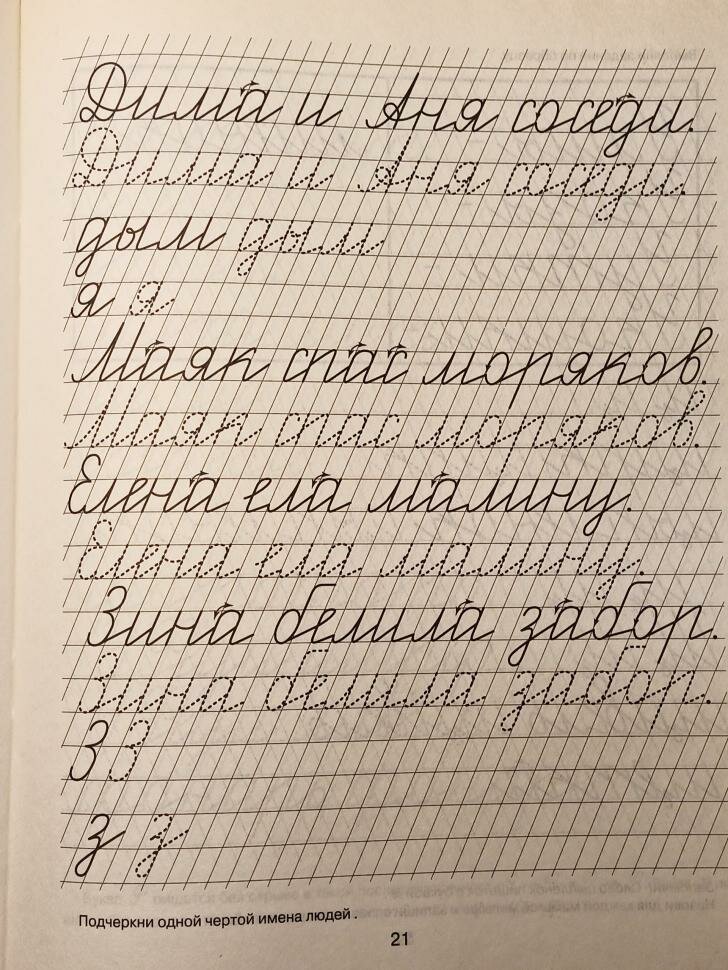 Дима и Аня соседи.
Дима и Аня соседи.
дым дым
я я
Маяк спас моряков.
Маяк спас моряков.
Елена ела малину.
Елена ела малину.
Зина белила забор.
Зина белила забор.
З З
з з
Подчеркни одной чертой имена людей.
21